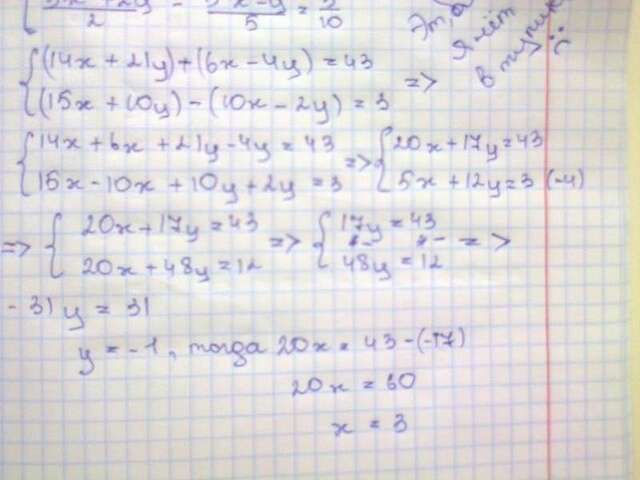 { (5x+2y)/2 - (5x-y)/5 = 3/10
{ (14x+21y)+(6x-4y)=43
{ (15x+10y)-(10x-2y)=3 =>
{ 14x+6x+21y-4y=43
{ 15x-10x+10y+2y=3 => { 20x+17y=43
{ 5x+12y=3 (-4)
=> { 20x+17y=43
{ 20x+48y=12 => { 17y=43
{ 48y=12 =>
-31y=31
y=-1, тогда 20x=43-(-17)
20x=60
x=3
в тупик